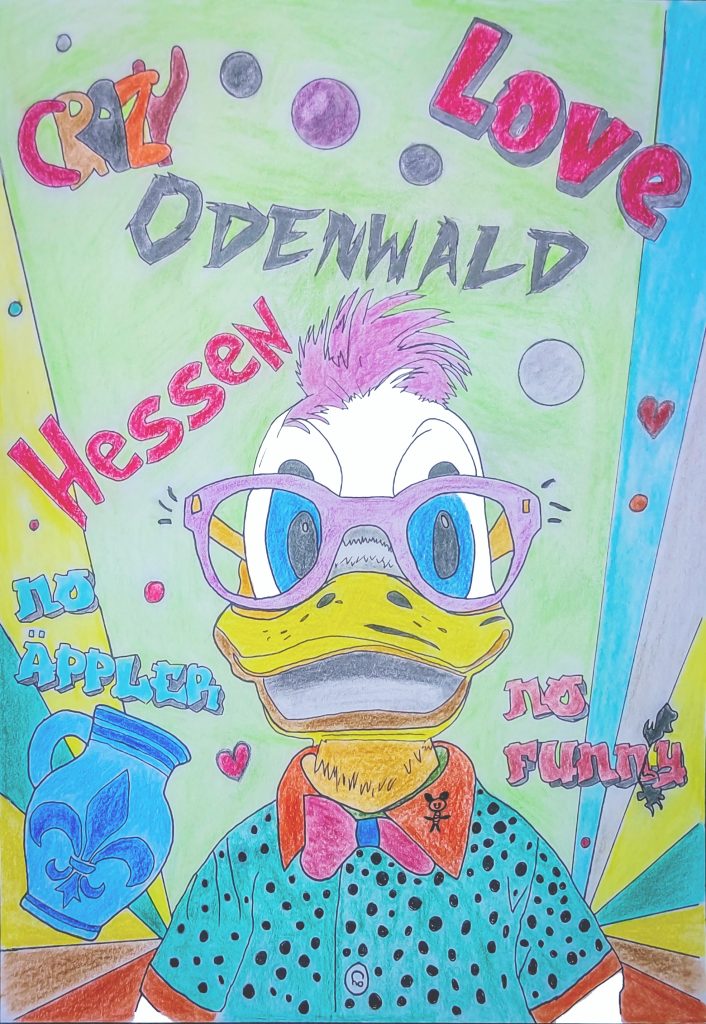 CRAZY
LOVe
ODENWALD
HeSSeN
NO
ÄPPLER
NO
FUNNY